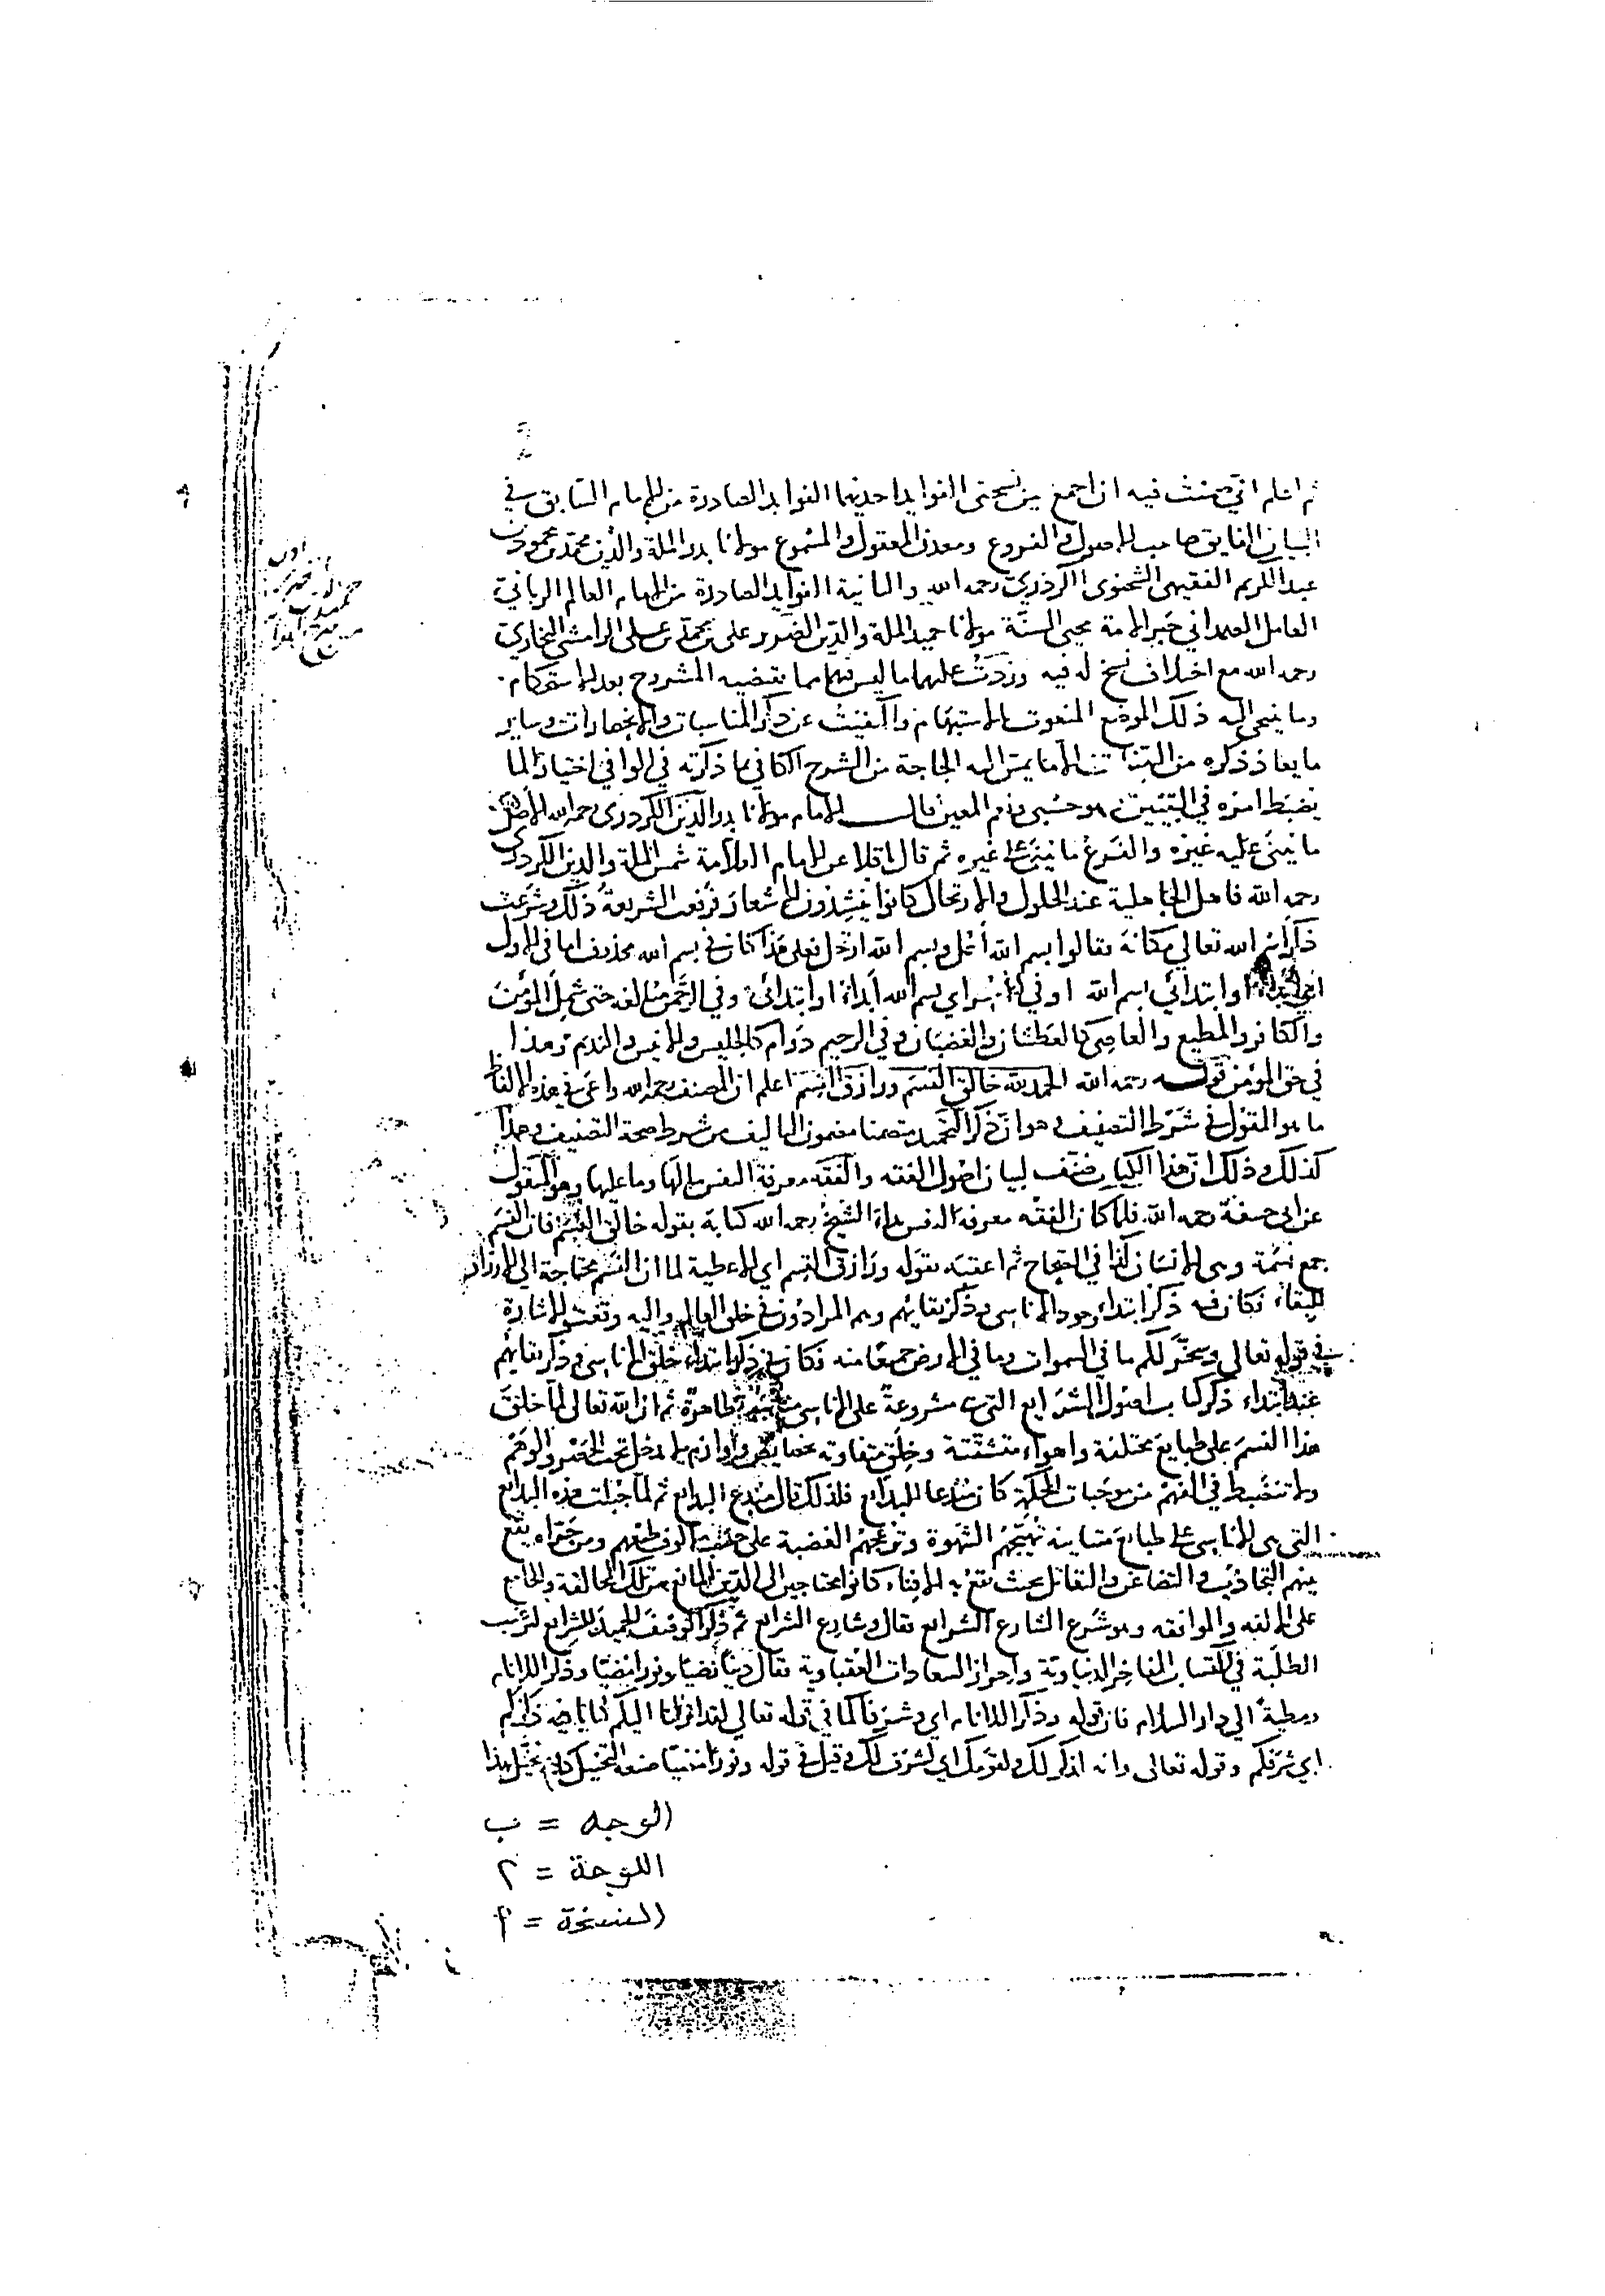 ثم اعلم اني ضمنت فيه ان اجمع بين نسختي الفوايد احديهما الفوايد الصادرة من الامام السابق في
البيان الفايق صاحب الاصول والفروع ومعدن المعقول والمسموع مولانا بدر الملة والدين محمد بن محمود بن
عبد الكريم الفقيهي الكردري رحمه الله والثانية الفوايد الصادرة من الهمام العالم الرباني
العامل الصمداني حبر الامة محيي السنة مولانا حميد الملة والدين الضرير علي بن محمد بن علي الرامشي البخاري
رحمه الله مع اختلاف نسخ له فيه وزدت عليهما ما ليس فيهما مما يقتضيه المشروح بعد الاستحكام
وما ينحي اليه ذلك الموضع المنعوت بالاستبهام واكتفيت عن ذكر المناسبات والانحصارات وساير
ما يعاد ذكره من الا ما يمس اليه الحاجة من الشرح الكافي بما ذكرته في الوافي اختيارا لما
يضبط امره في وهو حسبي ونعم المعين قال الامام مولانا بدر الدين الكردري رحمه الله الاصل
ما يبنى عليه غيره والفرع ما يبنى على غيره ثم قال ناقلا عن الامام العلامة شمس الملة والدين الكردري
رحمه الله فاهل الجاهلية عند الحلول والارتحال كانوا ينشدون الاشعار فرفعت الشريعة ذلك وشرعت
ذكر اسم الله تعالى مكانه فقالوا بسم الله أحل وبسم الله ارتحل فعلى هذا كان في بسم الله محذوف اما في الاول
اي او ابتدائي بسم الله او في اي بسم الله أبدأ او ابتدائي وفي الرحمن مبالغة حتى شمل المؤمن
والكافر والمطيع والعاصي كالعطشان والغضبان وفي الرحيم دوام كالجليس والانيس والنديم وهذا
في حق المؤمن قوله رحمه الله الحمد لله خالق النسم ورازق القسم اعلم ان المصنف رحمه الله راعى في هذه الالفاظ
ما هو المقول في شرط التصنيف وهو ان ذكر التحميد متضمنا مضمون التاليف من شرط صحة التصنيف وهذا
كذلك وذلك ان هذا الكتاب صنف لبيان اصول الفقه والفقه معرفة النفس ما لها وما عليها وهو المنقول
عن ابي حنيفة رحمه الله فلما كان الفقه معرفة النفس بدأ الشيخ رحمه الله كتابه بقوله خالق النسم فان النسم
جمع نسمة وهي الانسان كذا في الصحاح ثم اعقبه بقوله ورازق القسم اي الاعطية لما ان النسم محتاجة الى الارزاق
للبقاء فكان فيه ذكر ابتداء وجود الاناسي وذكر بقائهم وهم المرادون في خلق العالم واليه وقعت الاشارة
في قوله تعالى وسخر لكم ما في السموات وما في الارض جميعا منه فكان في ذكر ابتداء خلق الاناسي وذكر بقائهم
عند ابتداء ذكر كتاب اصول الشرايع التي هي مشروعة على الاناسي ظاهرة ثم ان الله تعالى لما خلق
هذا النسم على طبايع مختلفة واهواء متشتتة وخلق متفاوتة بخصايص ولوازم لا يدخل تحت الحصر والوهم
ولا تنضبط في الفهم من موجبات الحكمة كان مبدعا للبدايع فلذلك قال مبدع البدايع ثم لما جبلت هذه البدايع
التي هي الاناسي على طبايع متباينة تهيجهم الشهوة وتزعجهم الغضبة على ومن جراه يقع
بينهم التجاذب والتضاغن والتقاتل بحيث تقع به الافناء كانوا محتاجين الى الدين المانع من تلك المخالفة والجامع
على الالفة والموافقة وهو شرع الشارع الشرايع فقال وشارع الشرايع ثم ذكر الوصف الحميد للشرايع لترغيب
الطلبة في اكتساب المفاخر الدنياوية واحراز السعادات العقباوية فقال دينا رضيا ونورا مضيا وذكرا للانام
ومطية الى دار السلام فان قوله وذكرا للانام اي وشرفا كما في قوله تعالى لقد انزلنا اليكم كتابا فيه ذكركم
اي شرفكم وقوله تعالى وانه لذكر لك ولقومك اي لشرف لك وقيل في قوله ونورا مضيا صنعة التخييل كانه تخيل هذا
الوجه = ب
اللوحة = ٢
النسخة = أ